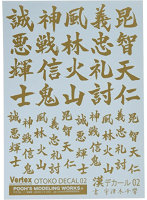 誠神風義昆
悪戦林忠智
輝信火礼天
士鬼山討仁
昆智天仁
義忠礼討
風林火山
神戦信鬼
誠悪輝士
Vertex
OTOKO DECAL 02
POOH'S MODELING WORKS
漢デカール02